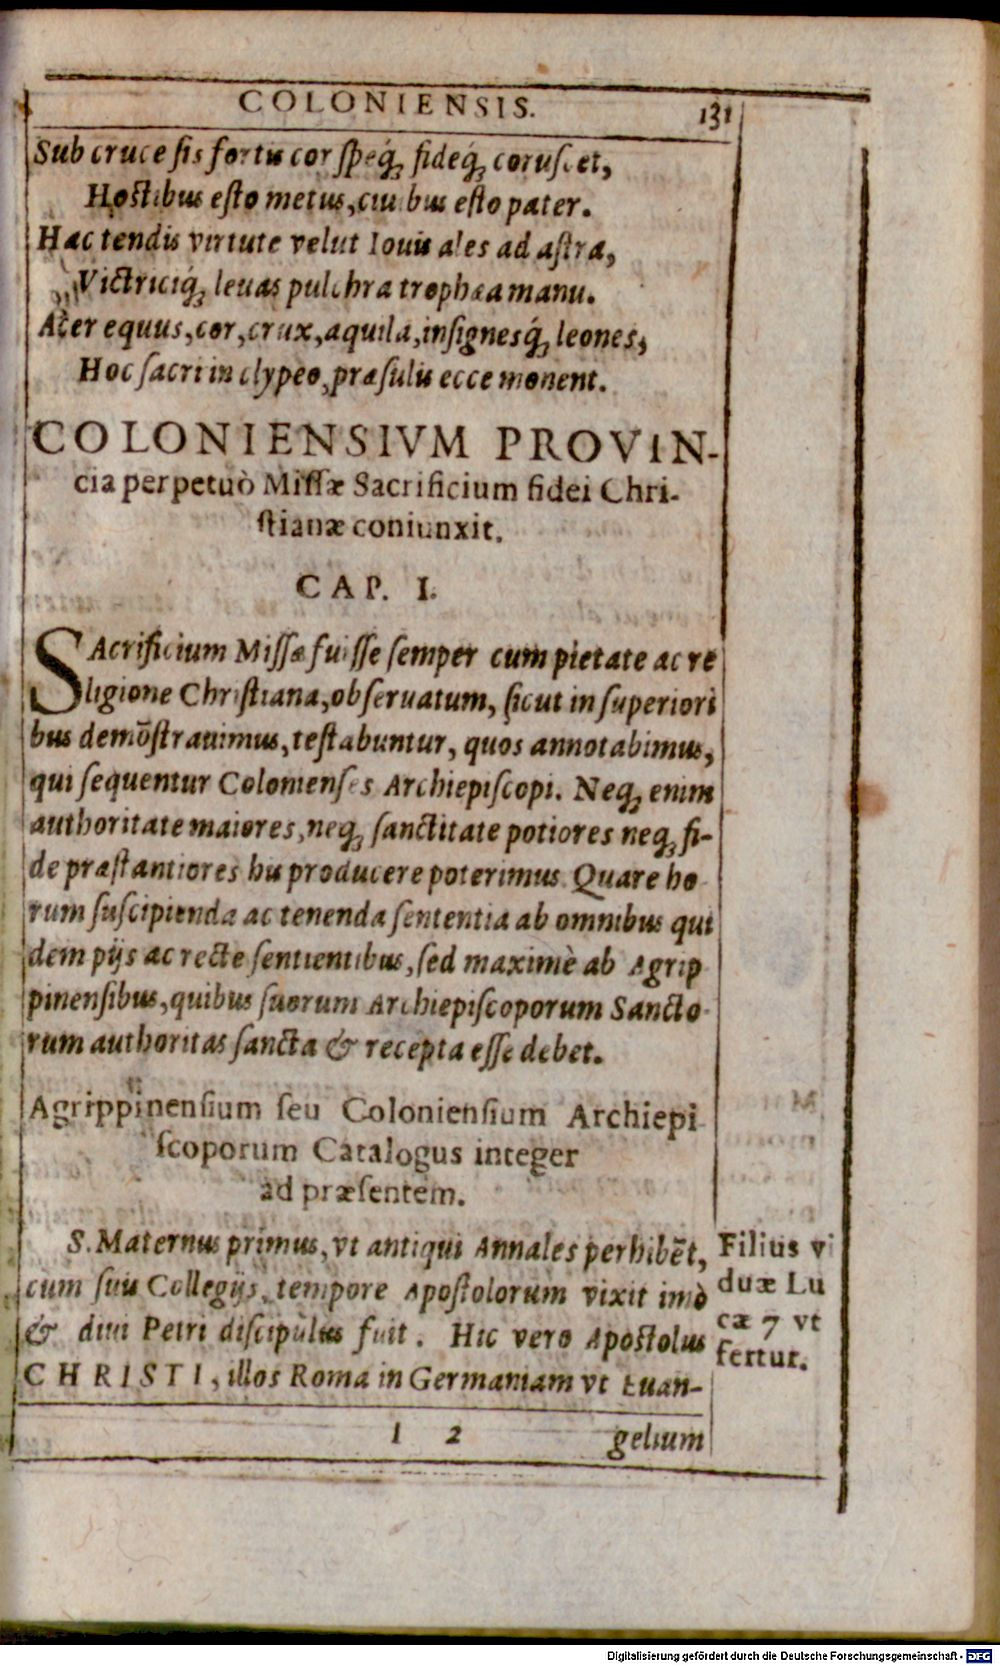 COLONIENSIS. 131
Sub cruce sis fortis cor speq́; fideq́; coruscet,
Hostibus esto metus, ciuibus esto pater.
Hac tendis virtute velut Iouis ales ad astra,
Victriciq́; leuas pulchra trophæa manu.
Ater equus, cor, crux, aquila, insignesq́; leones,
Hoc sacri in clypeo, præsulis ecce monent.
COLONIENSIVM PROVIN-
cia perpetuò Missæ Sacrificium fidei Chri-
stianæ coniunxit.
CAP. I.
SAcrificium Missæ fuisse semper cum pietate ac re
ligione Christiana, obseruatum, sicut in superiori
bus demõstrauimus, testabuntur, quos annotabimus,
qui sequentur Colonienses Archiepiscopi. Neq; enim
authoritate maiores, neq; sanctitate potiores neq; fi-
de præstantiores his producere poterimus. Quare ho
rum suscipienda ac tenenda sententia ab omnibus qui
dem pijs ac recte sentientibus, sed maximè ab Agrip
pinensibus, quibus suorum Archiepiscoporum Sancto
rum authoritas sancta & recepta esse debet.
Agrippinensium seu Coloniensium Archiepi
scoporum Catalogus integer
ad præsentem.
S. Maternus primus, vt antiqui Annales perhibẽt,
cum suis Collegijs, tempore Apostolorum vixit imò
& diui Petri discipulus fuit. Hic vero Apostolus
CHRISTI, illos Roma in Germaniam vt Euan-
Filius vi
duæ Lu
cæ 7 vt
fertur.
I 2 gelium
Digitalisierung gefördert durch die Deutsche Forschungsgemeinschaft - DFG